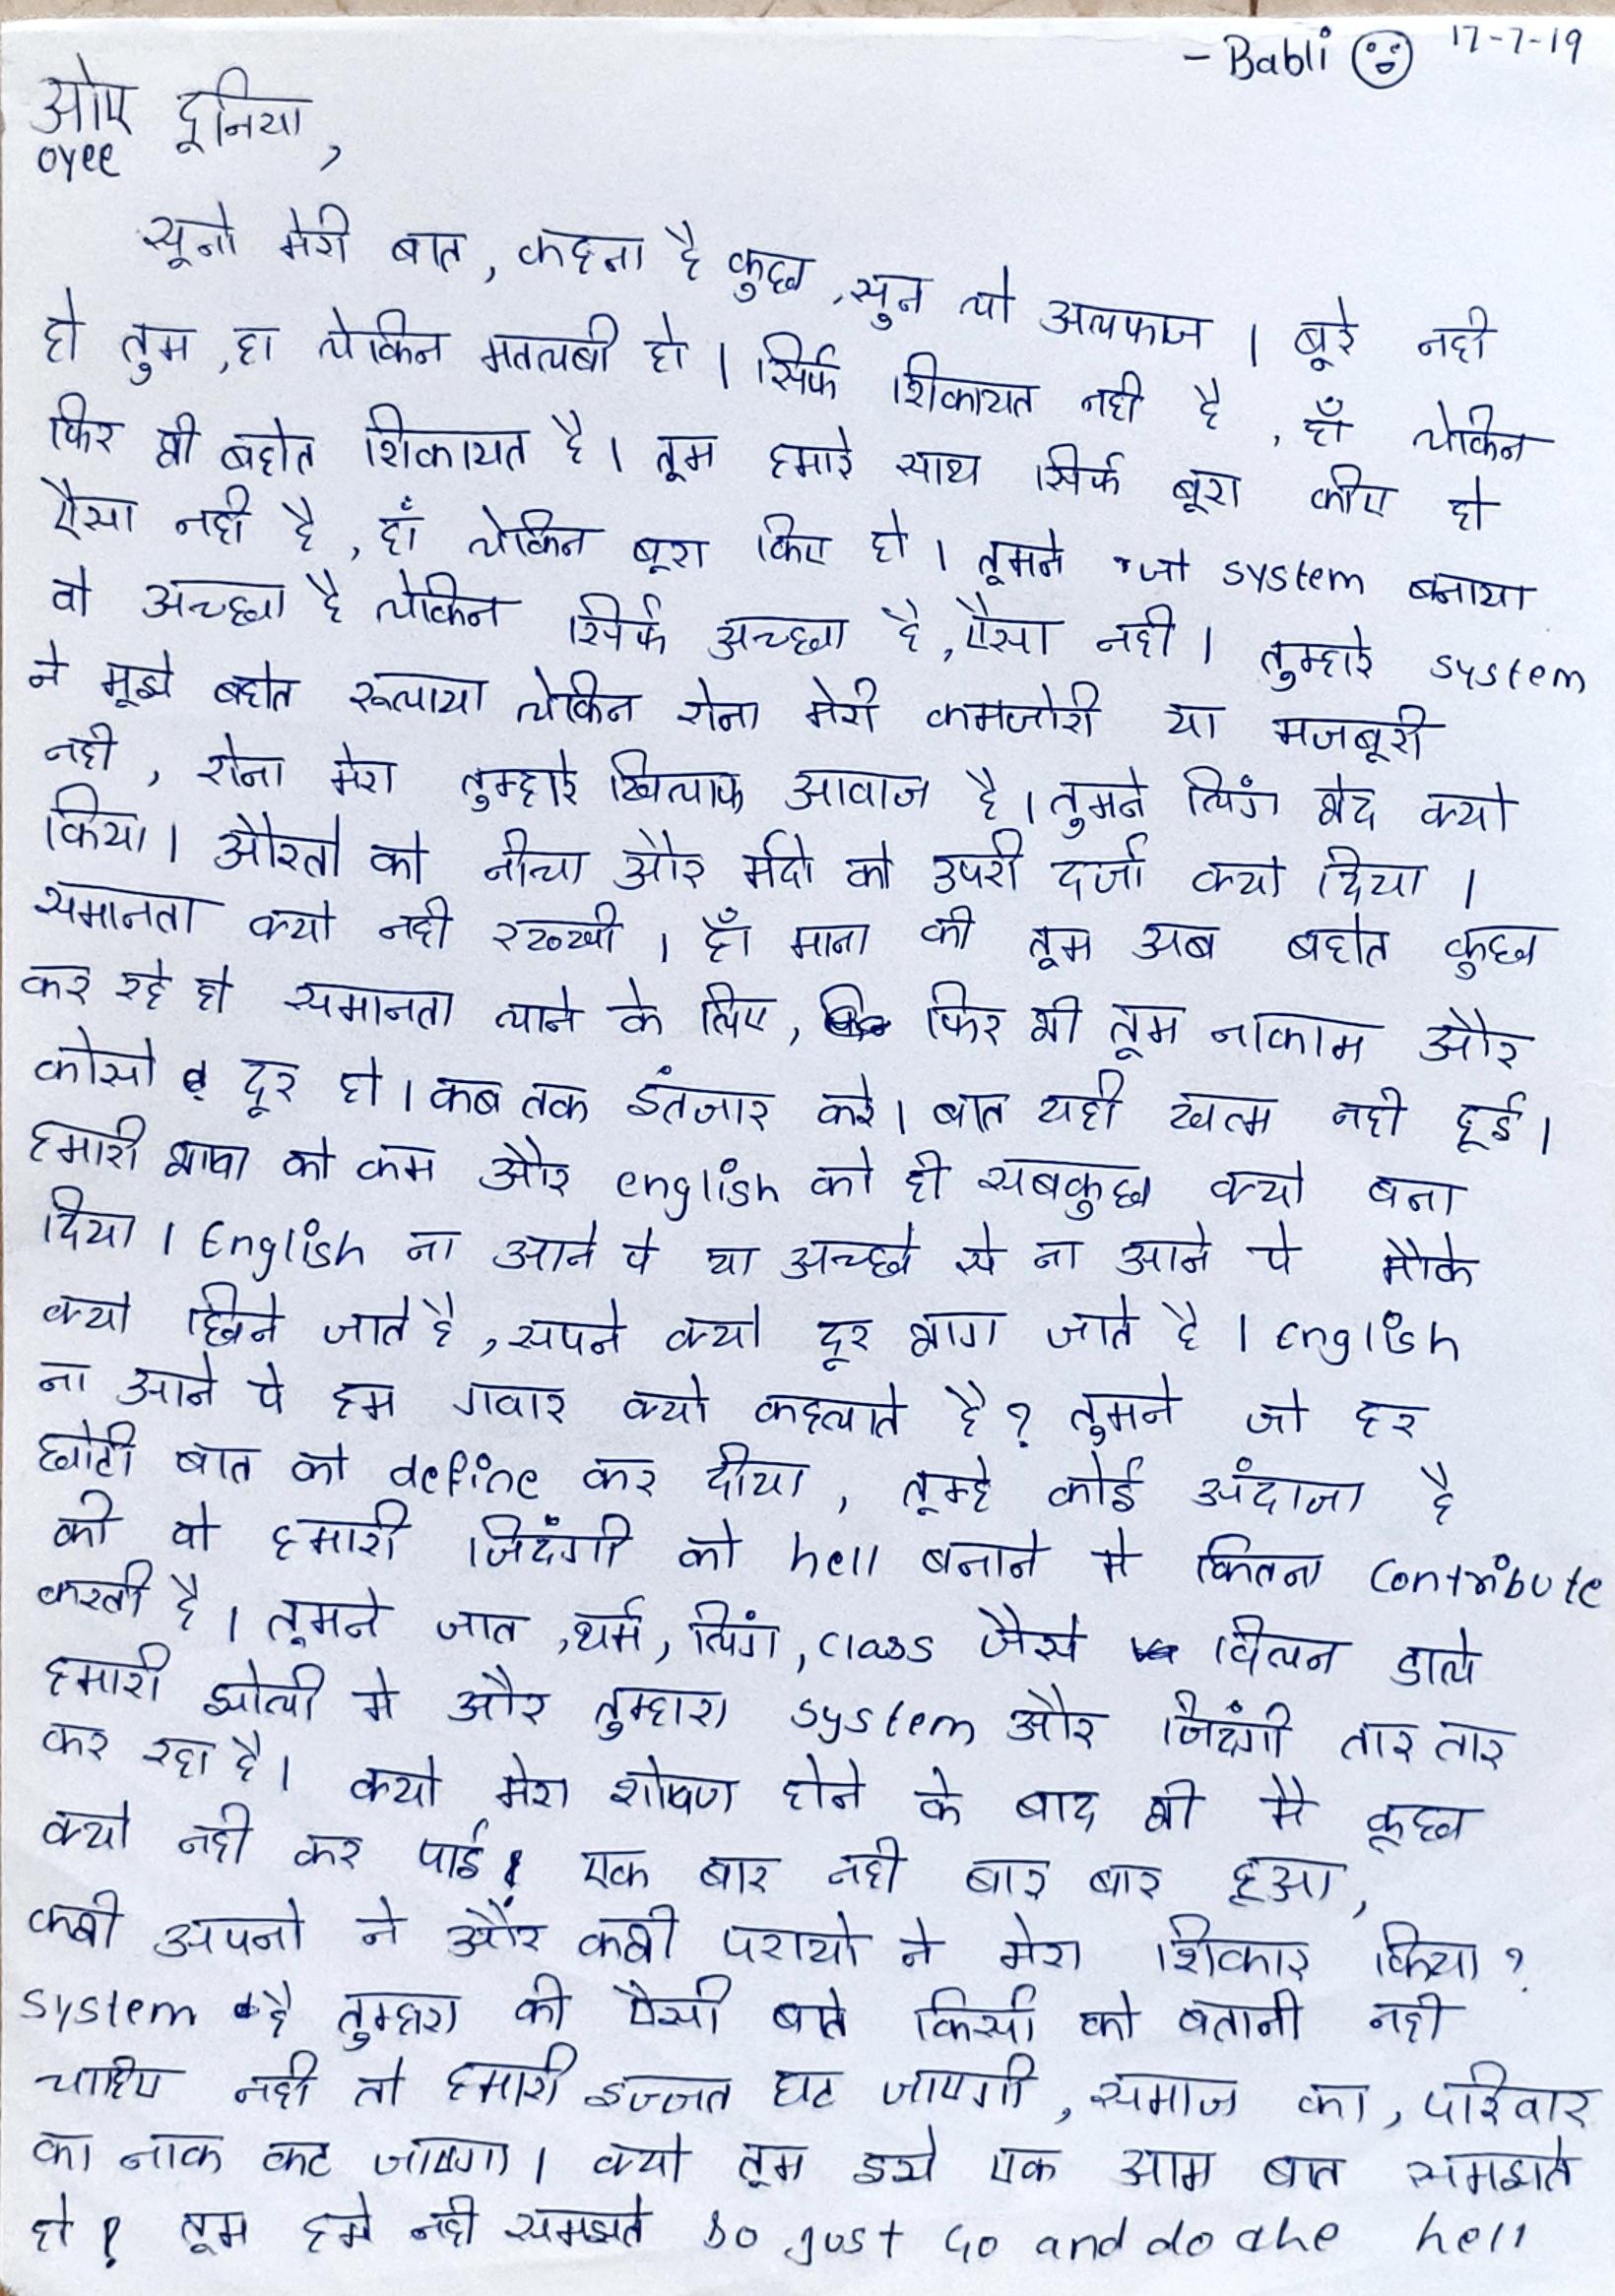 - Babli 17-7-19
ओए दूनिया,
oyee
सूनो मेरी बात, कहना है कुछ, सुन लो अलफाज । बूरे नही
हो तुम, हा लेकिन मतलबी हो । सिर्फ शिकायत नही है, हाँ लेकिन
फिर भी बहोत शिकायत है । तूम हमारे साथ सिर्फ बूरा कीए हो
ऐसा नही है, हाँ लेकिन बूरा किए हो । तूमने जो system बनाया
वो अच्छा है लेकिन सिर्फ अच्छा है, ऐसा नही । तुम्हारे system
ने मूझे बहोत रूलाया लेकिन रोना मेरी कमजोरी या मजबूरी
नही, रोना मेरा तुम्हारे खिलाफ आवाज है । तुमने लिंग भेद क्यो
किया । औरतो को नीचा और र्मदो को उपरी दर्जा क्यो दिया ।
समानता क्यो नही रख्खी । हाँ माना की तूम अब बहोत कुछ
कर रहे हो समानता लाने के लिए, फिर भी तूम नाकाम और
कोसो दूर हो । कब तक इंतजार करे । बात यही खत्म नही हूई ।
हमारी भाषा को कम और english को ही सबकुछ क्यो बना
दिया । English ना आने पे या अच्छे से ना आने पे मौके
क्यो छिने जाते है, सपने क्यो दूर भाग जाते है । English
ना आने पे हम गवार क्यो कहलाते है ? तुमने जो हर
छोटी बात को define कर दीया, तूम्हे कोई अंदाजा है
की वो हमारी जिदंगी को hell बनाने मे कितना contribute
करती है । तूमने जात, धर्म, लिंग, class जैसे विलन डाले
हमारी झोली मे और तुम्हारा system और जिदंगी तार तार
कर रहा है । क्यो मेरा शोषण होने के बाद भी मै कूछ
क्यो नही कर पाई ? एक बार नही बार बार हूआ,
कभी अपनो ने और कभी परायो ने मेरा शिकार किया ?
system है तुम्हारा की ऐसी बाते किसी को बतानी नही
चाहिए नही तो हमारी इज्जत घट जाएगी, समाज का, परिवार
का नाक कट जाएगा । क्यो तूम इसे एक आम बात समझते
हो ? तूम हमे नही समझते so just Go and do the hell